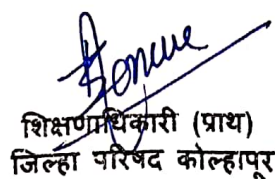 शिक्षणाधिकारी (प्राथ)
जिल्हा परिषद कोल्हापूर